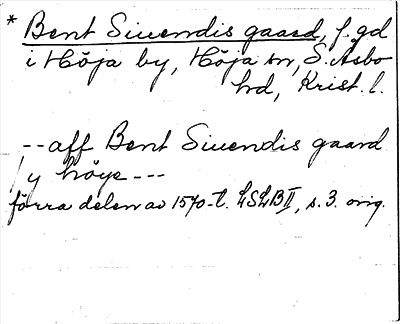 * Bent Siuendis gaard, f. gd
i Höja by, Höja sn, S. Åsbo
hd, Krist. l.
-- aff Bent Siuendis gaard
y höye ---
förra delen av 1570-t. LSLB II, s. 3. orig.